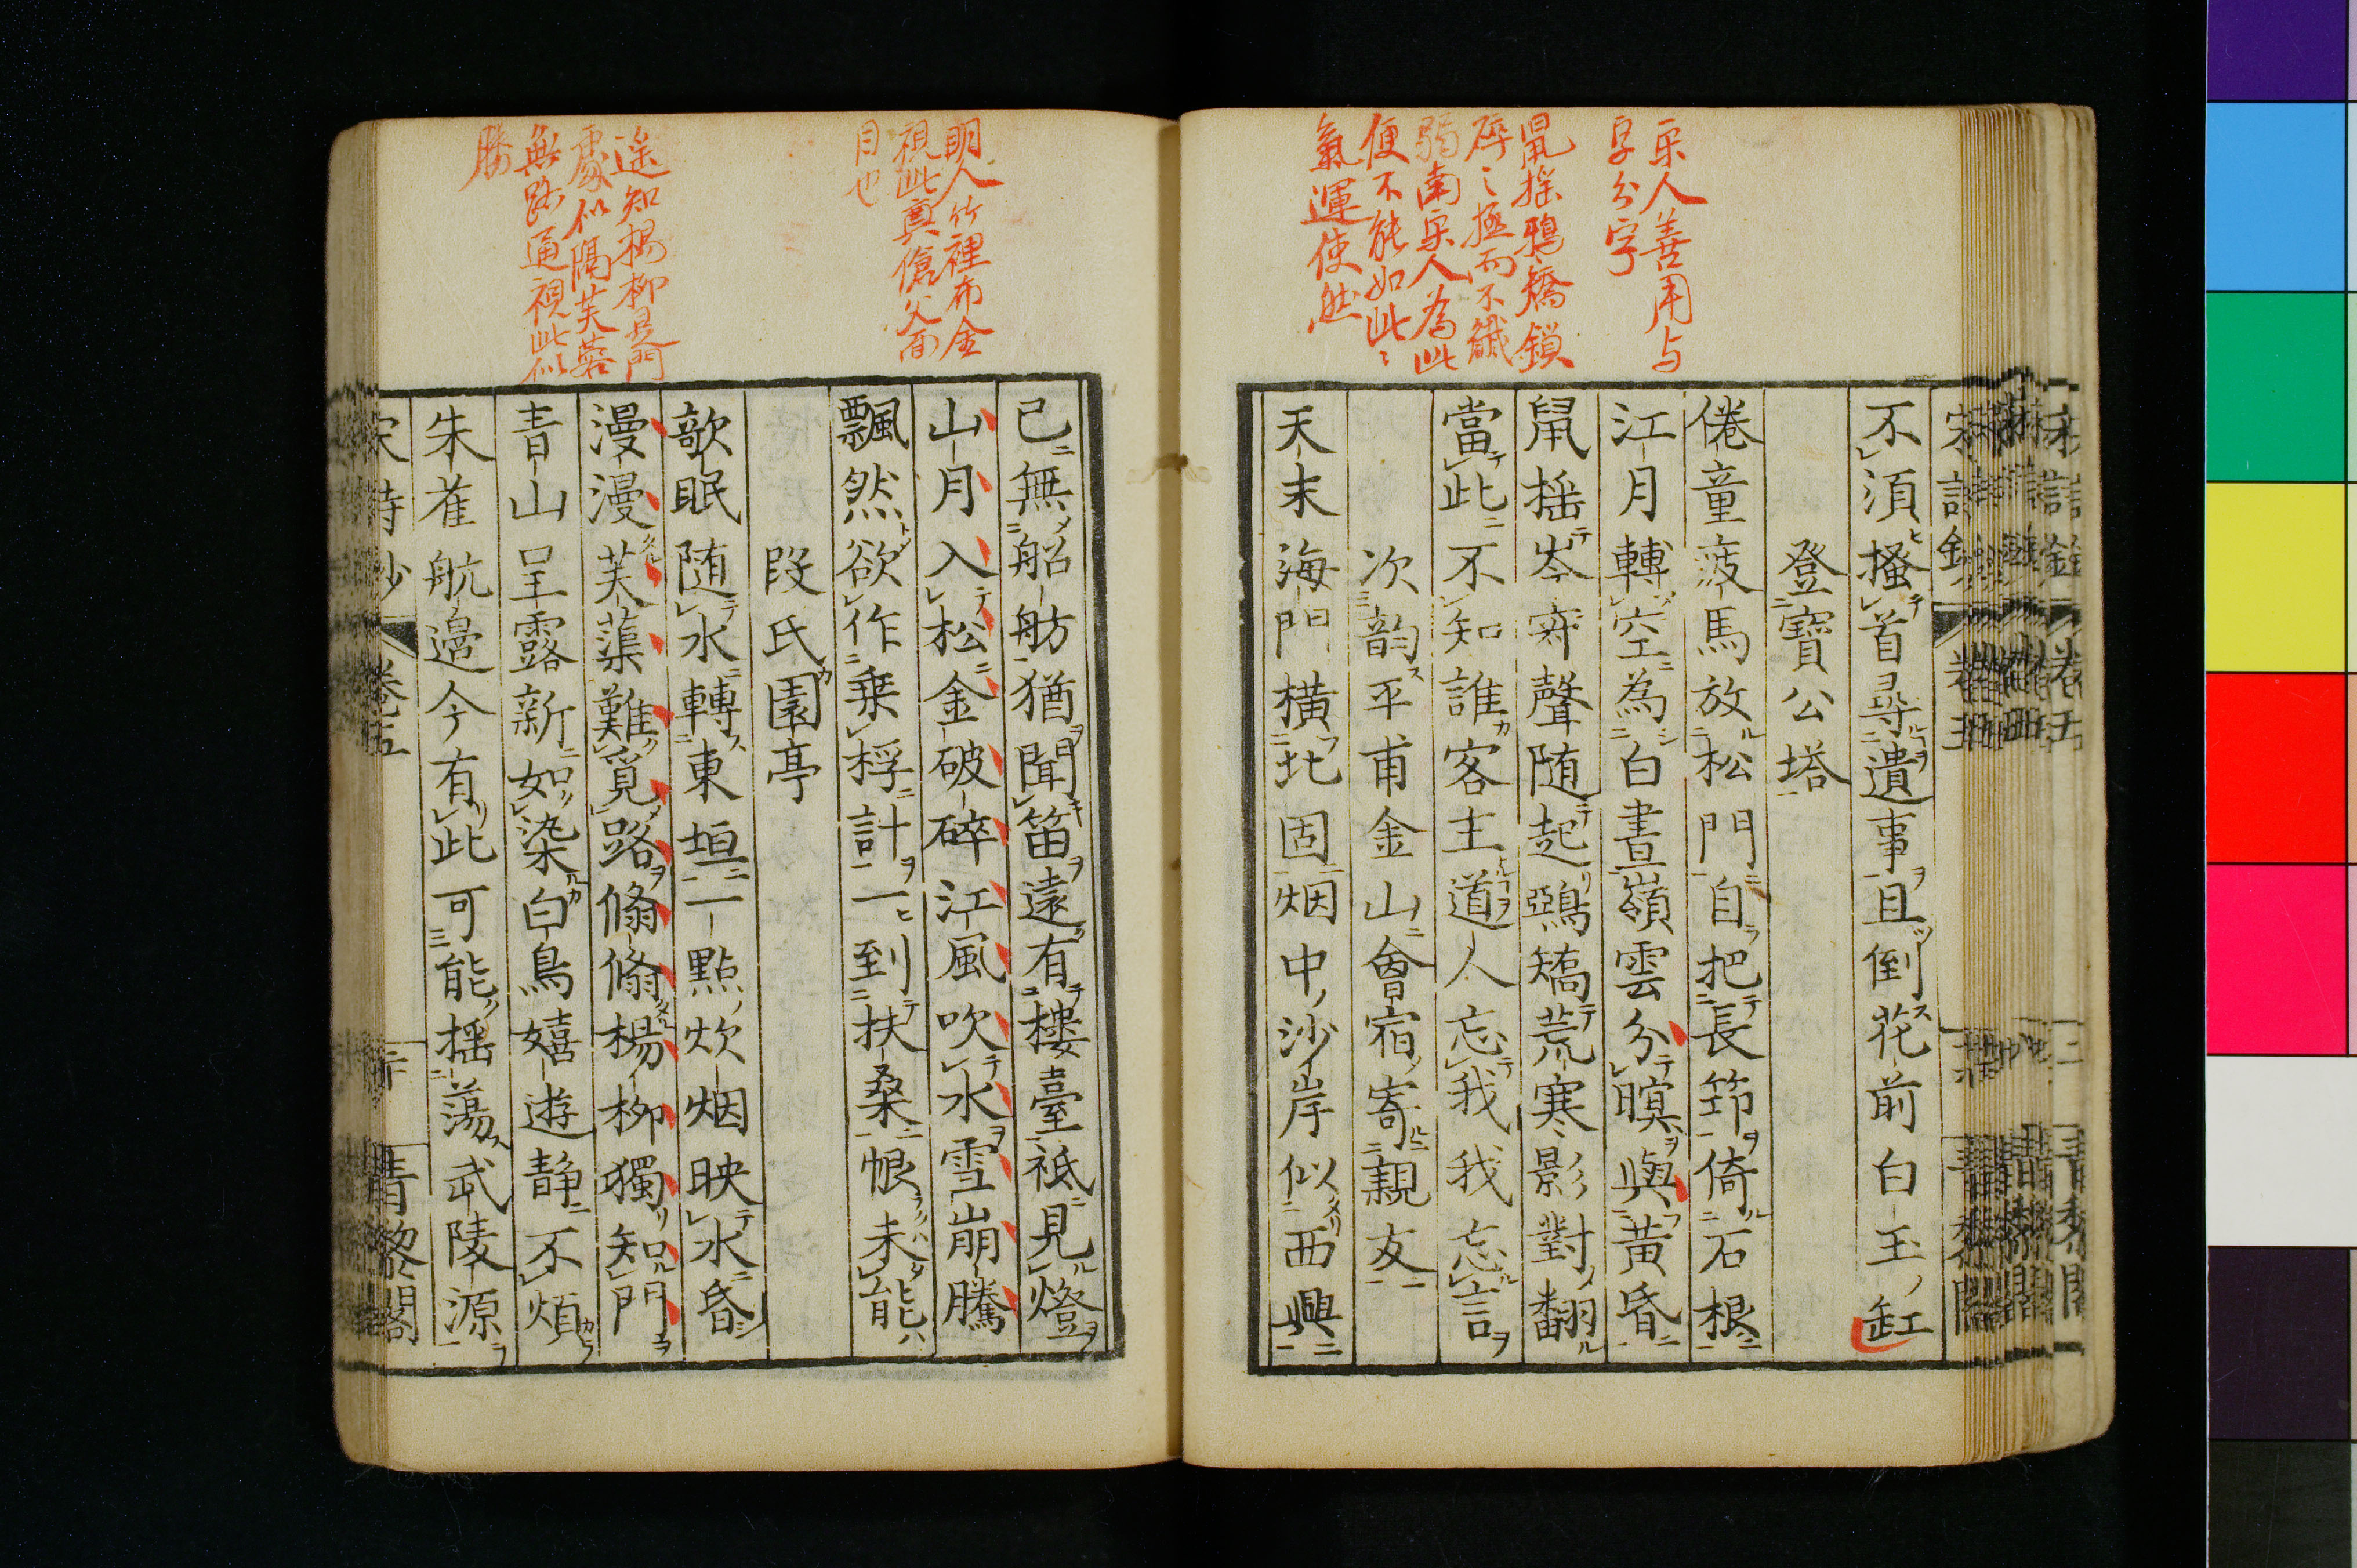 宋人善用与
字分字
鼠揺鴉矯鎖
碎々極而不纎
弱南宋人為此
便不能如此々
氣運使然
不須搔首尋遺事且倒花前白玉缸
登寶公塔
倦童疲馬放松門自把長筇倚石根
江月轉空為白晝嶺雲分暝與黃昏
鼠揺岑寂聲随起鵶矯荒寒影對翻
當此不知誰客主道人忘我我忘言
次韵平甫金山會宿寄親友
天末海門橫北固烟中沙岸似西興
明人竹裡布金
視此真傖父面
目也
遥知楊柳是門
處似隔芙蓉
無路通視此似
勝
已無船舫猶聞笛遠有樓臺祗見燈
山月入松金破碎江風吹水雪崩騰
飄然欲作乗桴計一到扶桑恨未能
段氏園亭
欹眠随水轉東垣一點炊烟映水昏
漫漫芙蕖難覓路翛翛楊柳獨知門
青山呈露新如染白鳥嬉遊静不煩
朱雀航邊今有此可能揺蕩武陵源
宋詩鈔 卷五 青黎閣